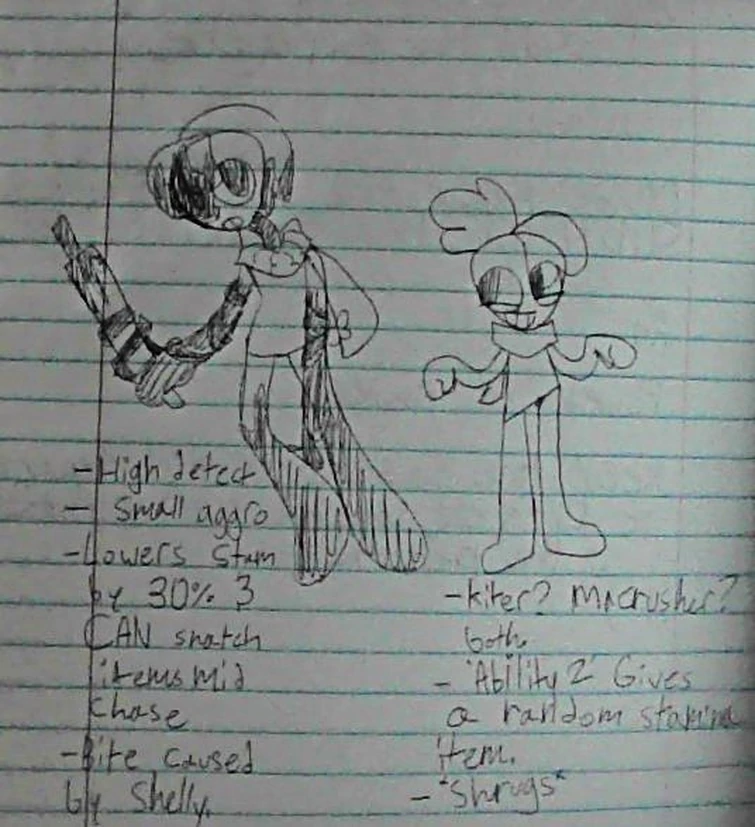 -High detect
- Small aggro
-Lowers stam
by 30% 3
CAN snatch
items mid
chase
-Bite caused
by Shelly.
-kiter? Macrusher?
both
- 'Ability 2' Gives
a random stamina
item.
- *Shrugs*